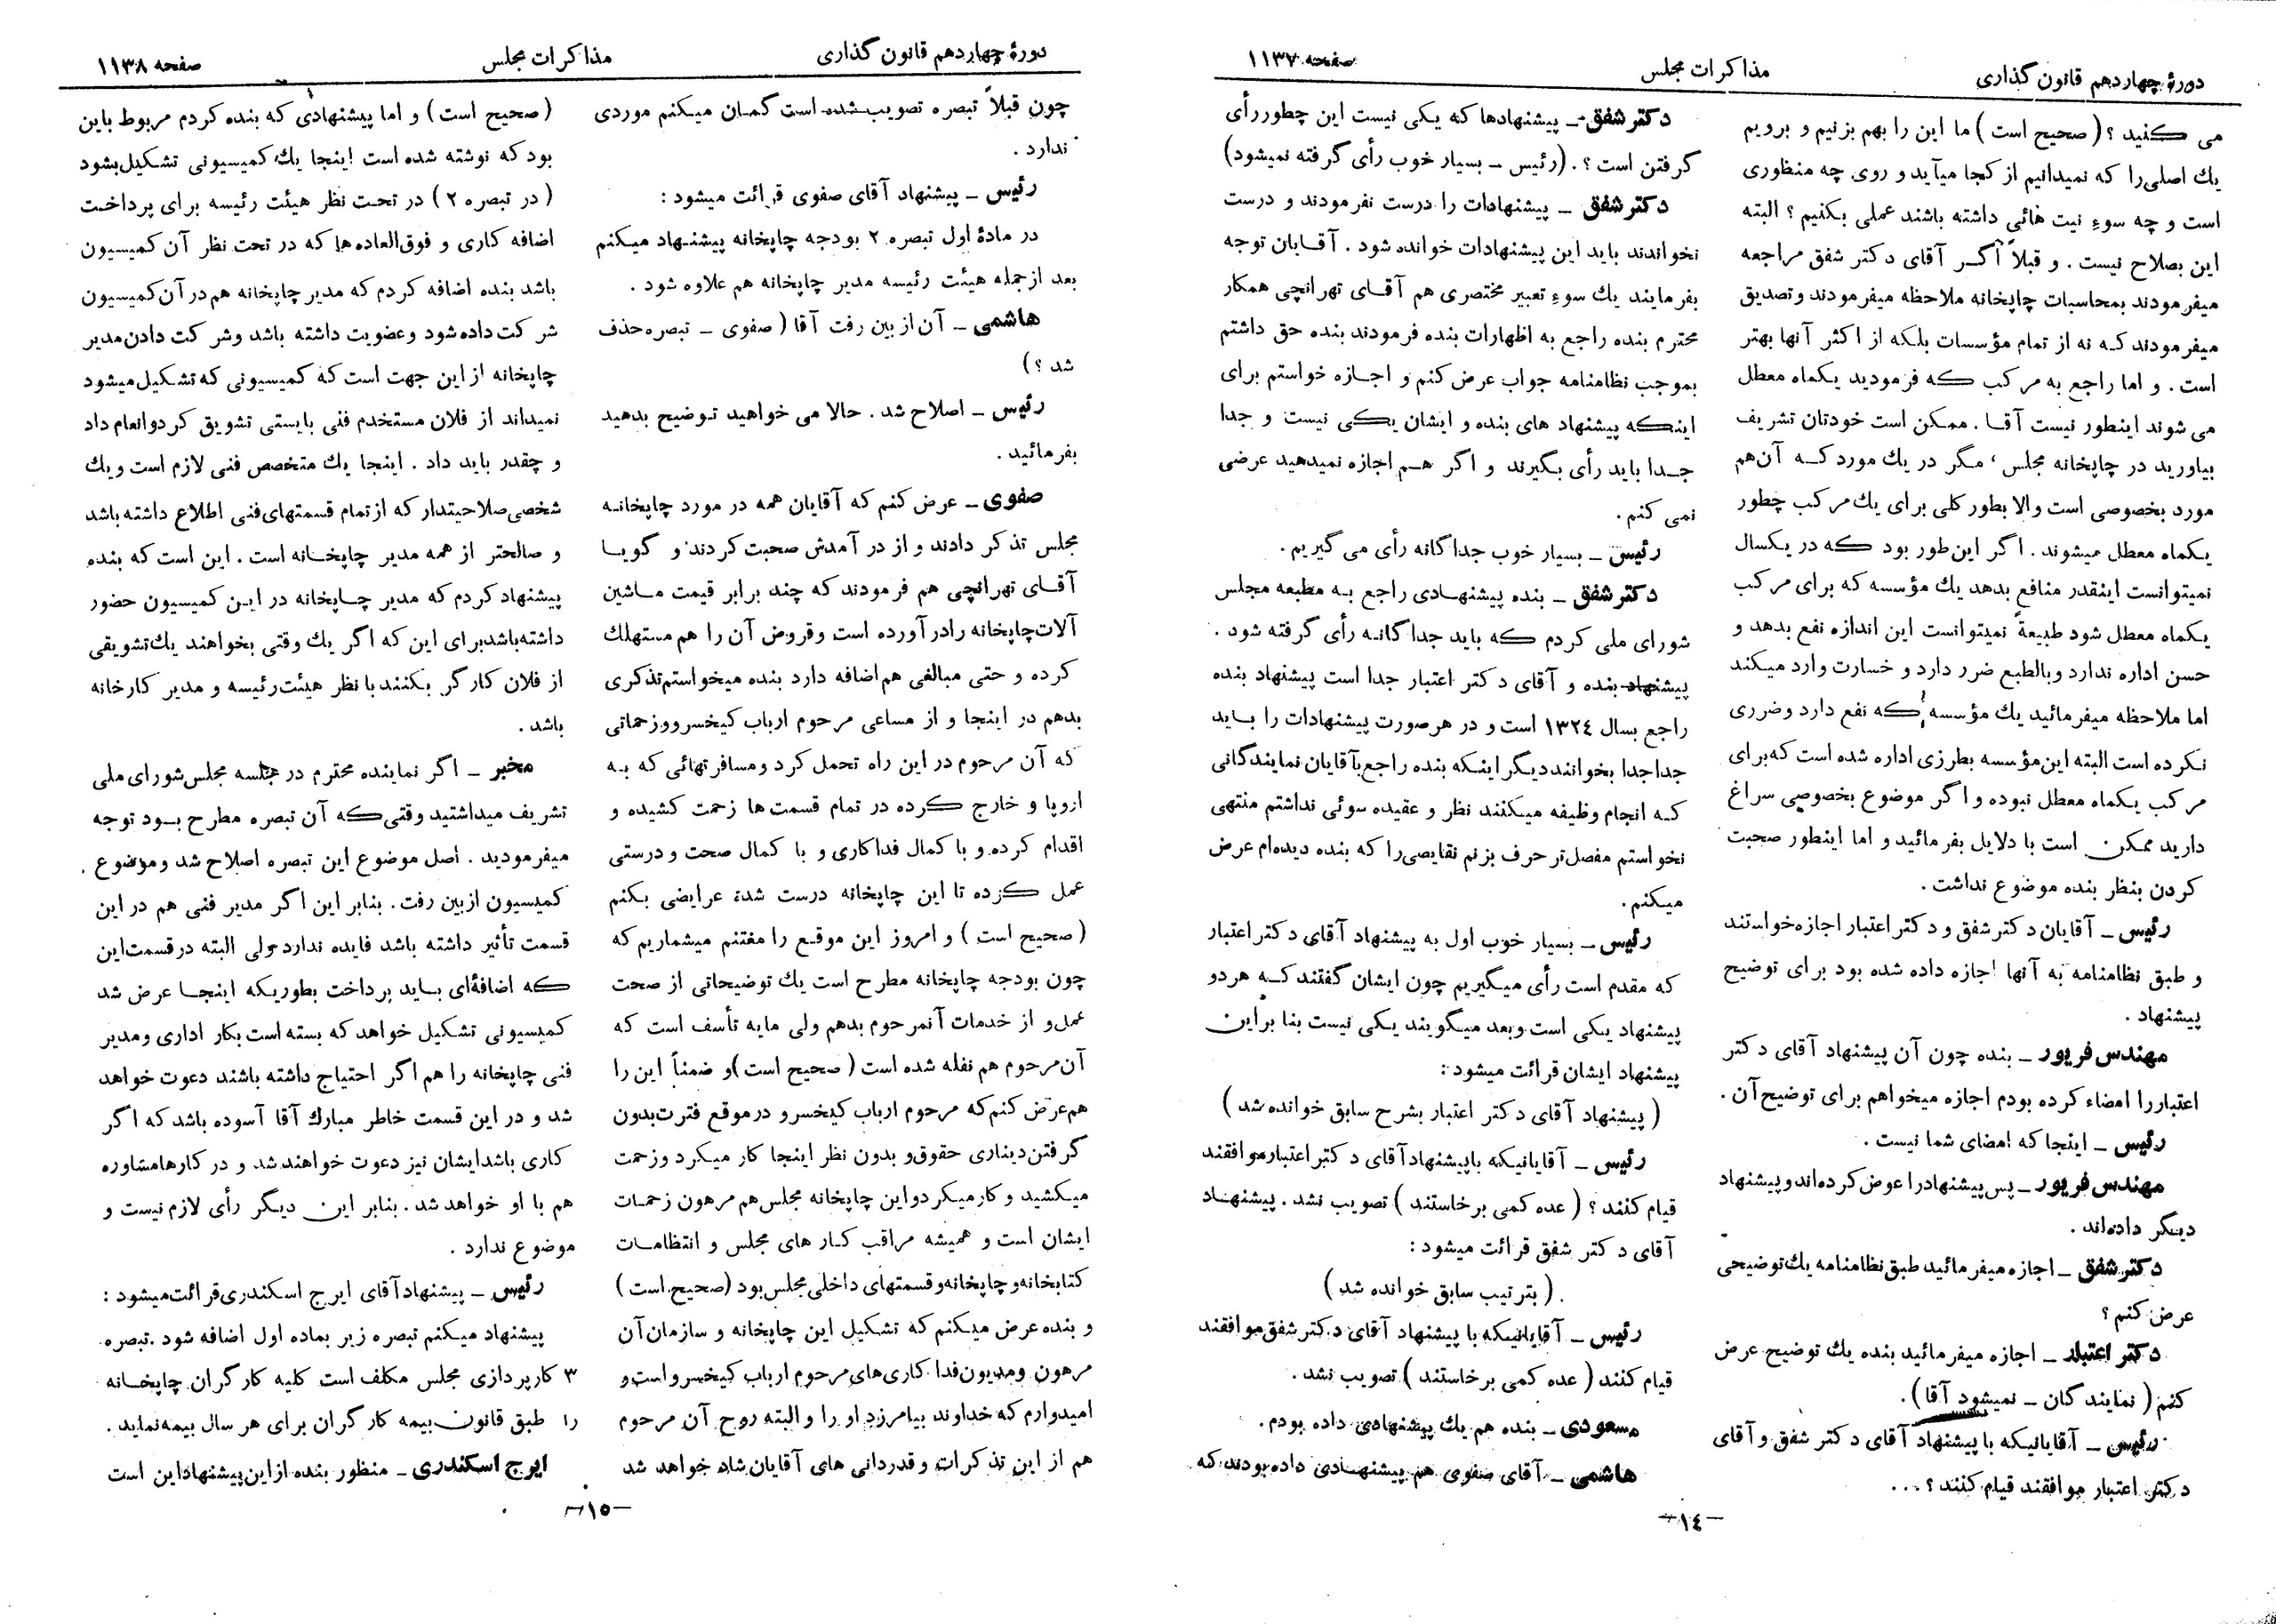 دورهٔ چهاردهم قانون گذاری
مذاکرات مجلس
صفحه ۱۱۳۷
می کنید ؟ ( صحیح است ) ما این را بهم بزنیم و برویم
یك اصلی را که نمیدانیم از کجا میآید و روی چه منظوری
است و چه سوء نیت هائی داشته باشند عملی بکنیم ؟ البته
این بصلاح نیست . و قبلاً اگـر آقای دکتر شفق مراجعه
میفرمودند بمحاسبات چاپخانه ملاحظه میفرمودند و تصدیق
میفرمودند کـه نه از تمام مؤسسات بلکه از اکثر آنها بهتر
است . و اما راجع به مرکب که فرمودید یکماه معطل
می شوند اینطور نیست آقـا . ممکن است خودتان تشریف
بیاورید در چاپخانه مجلس ، مگر در یك مورد کـه آن هم
مورد بخصوصی است والا بطور کلی برای یك مرکب چطور
یکماه معطل میشوند . اگر این طور بود که در یکسال
نمیتوانست اینقدر منافع بدهد یك مؤسسه که برای مرکب
یکماه معطل شود طبیعةً نمیتوانست این اندازه نفع بدهد و
حسن اداره ندارد و بالطبع ضرر دارد و خسارت وارد میکند
اما ملاحظه میفرمائید یك مؤسسه که نفع دارد و ضرری
نکرده است البته این مؤسسه بطرزی اداره شده است که برای
مرکب یکماه معطل نبوده و اگر موضوع بخصوصی سراغ
دارید ممکن است با دلایل بفرمائید و اما اینطور صحبت
کردن بنظر بنده موضوع نداشت .
رئیس ـ آقایان دکتر شفق و دکتر اعتبار اجازه خواستند
و طبق نظامنامه به آنها اجازه داده شده بود برای توضیح
پیشنهاد .
مهندس فریور ـ بنده چون آن پیشنهاد آقای دکتر
اعتبار را امضاء کرده بودم اجازه میخواهم برای توضیح آن .
رئیس ـ اینجا که امضای شما نیست .
مهندس فریور ـ پس پیشنهاد را عوض کرده‌اند و پیشنهاد
دیگر داده‌اند .
دکتر شفق ـ اجازه میفرمائید طبق نظامنامه یك توضیحی
عرض کنم ؟
دکتر اعتبار ـ اجازه میفرمائید بنده یك توضیح عرض
کنم ( نمایندگان ـ نمیشود آقا ) .
رئیس ـ آقایانیکه با پیشنهاد آقای دکتر شفق و آقای
دکتر اعتبار موافقند قیام کنند ؟ ...
دکتر شفق ـ پیشنهادها که یکی نیست این چطور رأی
گرفتن است ؟ . (رئیس ـ بسیار خوب رأی گرفته نمیشود)
دکتر شفق ـ پیشنهادات را درست نفرمودند و درست
نخواندند باید این پیشنهادات خوانده شود . آقـایان توجه
بفرمایند یك سوء تعبیر مختصری هم آقـای تهرانچی همکار
محترم بنده راجع به اظهارات بنده فرمودند بنده حق داشتم
بموجب نظامنامه جواب عرض کنم و اجـازه خواستم برای
اینکه پیشنهاد های بنده و ایشان یکی نیست و جدا
جـدا باید رأی بگیرند و اگر هـم اجازه نمیدهید عرضی
نمی کنم .
رئیس ـ بسیار خوب جداگانه رأی می گیریم .
دکتر شفق ـ بنده پیشنهـادی راجع بـه مطبعه مجلس
شورای ملی کردم که باید جداگانـه رأی گرفته شود .
پیشنهاد بنده و آقای دکتر اعتبار جدا است پیشنهاد بنده
راجع بسال ۱۳۲٤ است و در هرصورت پیشنهادات را بـاید
جدا جدا بخوانند دیگر اینکه بنده راجع بآقایان نمایندگانی
کـه انجام وظیفه میکنند نظر و عقیده سوئی نداشتم منتهی
نخواستم مفصل‌تر حرف بزنم نقایصی را که بنده دیده‌ام عرض
میکنم .
رئیس ـ بسیار خوب اول به پیشنهاد آقای دکتر اعتبار
که مقدم است رأی میگیریم چون ایشان گفتند کـه هر دو
پیشنهاد یکی است و بعد میگویند یکی نیست بنا براین
پیشنهاد ایشان قرائت میشود :
( پیشنهاد آقای دکتر اعتبار بشرح سابق خوانده شد )
رئیس ـ آقایانیکه با پیشنهاد آقای دکتر اعتبار موافقند
قیام کنند ؟ ( عده کمی برخاستند ) تصویب نشد . پیشنهـاد
آقای دکتر شفق قرائت میشود :
( بترتیب سابق خوانده شد ) .
رئیس ـ آقایانیکه با پیشنهاد آقای دکتر شفق موافقند
قیام کنند ( عده کمی برخاستند ) تصویب نشد .
مسعودی ـ بنده هم یك پیشنهادی داده بودم .
هاشمی ـ آقای صفوی هم پیشنهـادی داده بودند که
ـ۱٤ـ
دورهٔ چهاردهم قانون گذاری
مذاکرات مجلس
صفحه ۱۱۳۸
چون قبلاً تبصره تصویب شده است گمـان میکنم موردی
ندارد .
رئیس ـ پیشنهاد آقای صفوی قرائت میشود :
در مادهٔ اول تبصره ۲ بودجه چاپخانه پیشنهـاد میکنم
بعد از جمله هیئت رئیسه مدیر چاپخانه هم علاوه شود .
هاشمی ـ آن از بین رفت آقا ( صفوی ـ تبصره حذف
شد ؟ )
رئیس ـ اصلاح شد . حالا می خواهید تـوضیح بدهید
بفرمائید .
صفوی ـ عرض کنم که آقایان همه در مورد چاپخانـه
مجلس تذکر دادند و از در آمدش صحبت کردند و گویـا
آقـای تهرانچی هم فرمودند که چند برابر قیمت مـاشین
آلات چاپخانه را در آورده است و قروض آن را هم مستهلك
کرده و حتی مبالغی هم اضافه دارد بنده میخواستم تذکری
بدهم در اینجا و از مساعی مرحوم ارباب کیخسرو و زحماتی
که آن مرحوم در این راه تحمل کرد و مسافرتهائی که بـه
اروپا و خارج کرده در تمام قسمت ها زحمت کشیده و
اقدام کرده و با کمال فداکاری و با کمال صحت و درستی
عمل کرده تا این چاپخانه درست شده عرایضی بکنم
( صحیح است ) و امروز این موقـع را مغتنم میشماریم که
چون بودجه چاپخانه مطرح است یك توضیحاتی از صحت
عمل و از خدمات آنمرحوم بدهم ولی مایه تأسف است که
آن مرحوم هم نفله شده است ( صحیح است ) و ضمناً این را
هم عرض کنم که مرحوم ارباب کیخسرو در موقع فترت بدون
گرفتن دیناری حقوق و بدون نظر اینجا کار میکرد و زحمت
میکشید و کار میکرد و این چاپخانه مجلس هم مرهون زحمـات
ایشان است و همیشه مراقب کـار های مجلس و انتظامـات
کتابخانه و چاپخانه و قسمتهای داخلی مجلس بود (صحیح است )
و بنده عرض میکنم که تشکیل این چاپخانه و سازمان آن
مرهون و مدیون فداکاری‌های مرحوم ارباب کیخسرو است و
امیدوارم که خداوند بیامرزد او را و البته روح آن مرحوم
هم از این تذکرات و قدردانی های آقایان شاد خواهد شد
( صحیح است ) و اما پیشنهادی که بنده کردم مربوط باین
بود که نوشته شده است اینجا یك کمیسیونی تشکیل بشود
( در تبصره ۲ ) در تحت نظر هیئت رئیسه برای پرداخت
اضافه کاری و فوق‌العاده‌ها که در تحت نظر آن کمیسیون
باشد بنده اضافه کردم که مدیر چاپخانه هم در آن کمیسیون
شرکت داده شود و عضویت داشته باشد و شرکت دادن مدیر
چاپخانه از این جهت است که کمیسیونی که تشکیل میشود
نمیداند از فلان مستخدم فنی بایستی تشویق کرد و انعام داد
و چقدر باید داد . اینجا یك متخصص فنی لازم است و یك
شخصی صلاحیتدار که از تمام قسمتهای فنی اطلاع داشته باشد
و صالحتر از همه مدیر چاپخـانه است . این است که بنده
پیشنهاد کردم که مدیر چـاپخانه در ایـن کمیسیون حضور
داشته باشد برای این که اگر یك وقتی بخواهند یك تشویقی
از فلان کارگر بکنند با نظر هیئت رئیسه و مدیر کارخانه
باشد .
مخبر ـ اگر نماینده محترم در جلسه مجلس شورای ملی
تشریف میداشتید وقتی که آن تبصره مطرح بـود توجه
میفرمودید . اصل موضوع این تبصره اصلاح شد و موضوع
کمیسیون از بین رفت . بنابر این اگر مدیر فنی هم در این
قسمت تأثیر داشته باشد فایده ندارد ولی البته در قسمت این
که اضافه‌ای بـاید پرداخت بطوریکه اینجـا عرض شد
کمیسیونی تشکیل خواهد که بسته است بکار اداری و مدیر
فنی چاپخانه را هم اگر احتیاج داشته باشند دعوت خواهد
شد و در این قسمت خاطر مبارك آقا آسوده باشد که اگر
کاری باشد ایشان نیز دعوت خواهند شد و در کارها مشاوره
هم با او خواهد شد . بنابر این دیگر رأی لازم نیست و
موضوع ندارد .
رئیس ـ پیشنهاد آقای ایرج اسکندری قرائت میشود :
پیشنهاد میکنم تبصره زیر بماده اول اضافه شود . تبصره
۳ کارپردازی مجلس مکلف است کلیه کارگران چاپخـانه
را طبق قانون بیمه کارگران برای هر سال بیمه نماید .
ایرج اسکندری ـ منظور بنده از این پیشنهاد این است
ـ۱۵ـ